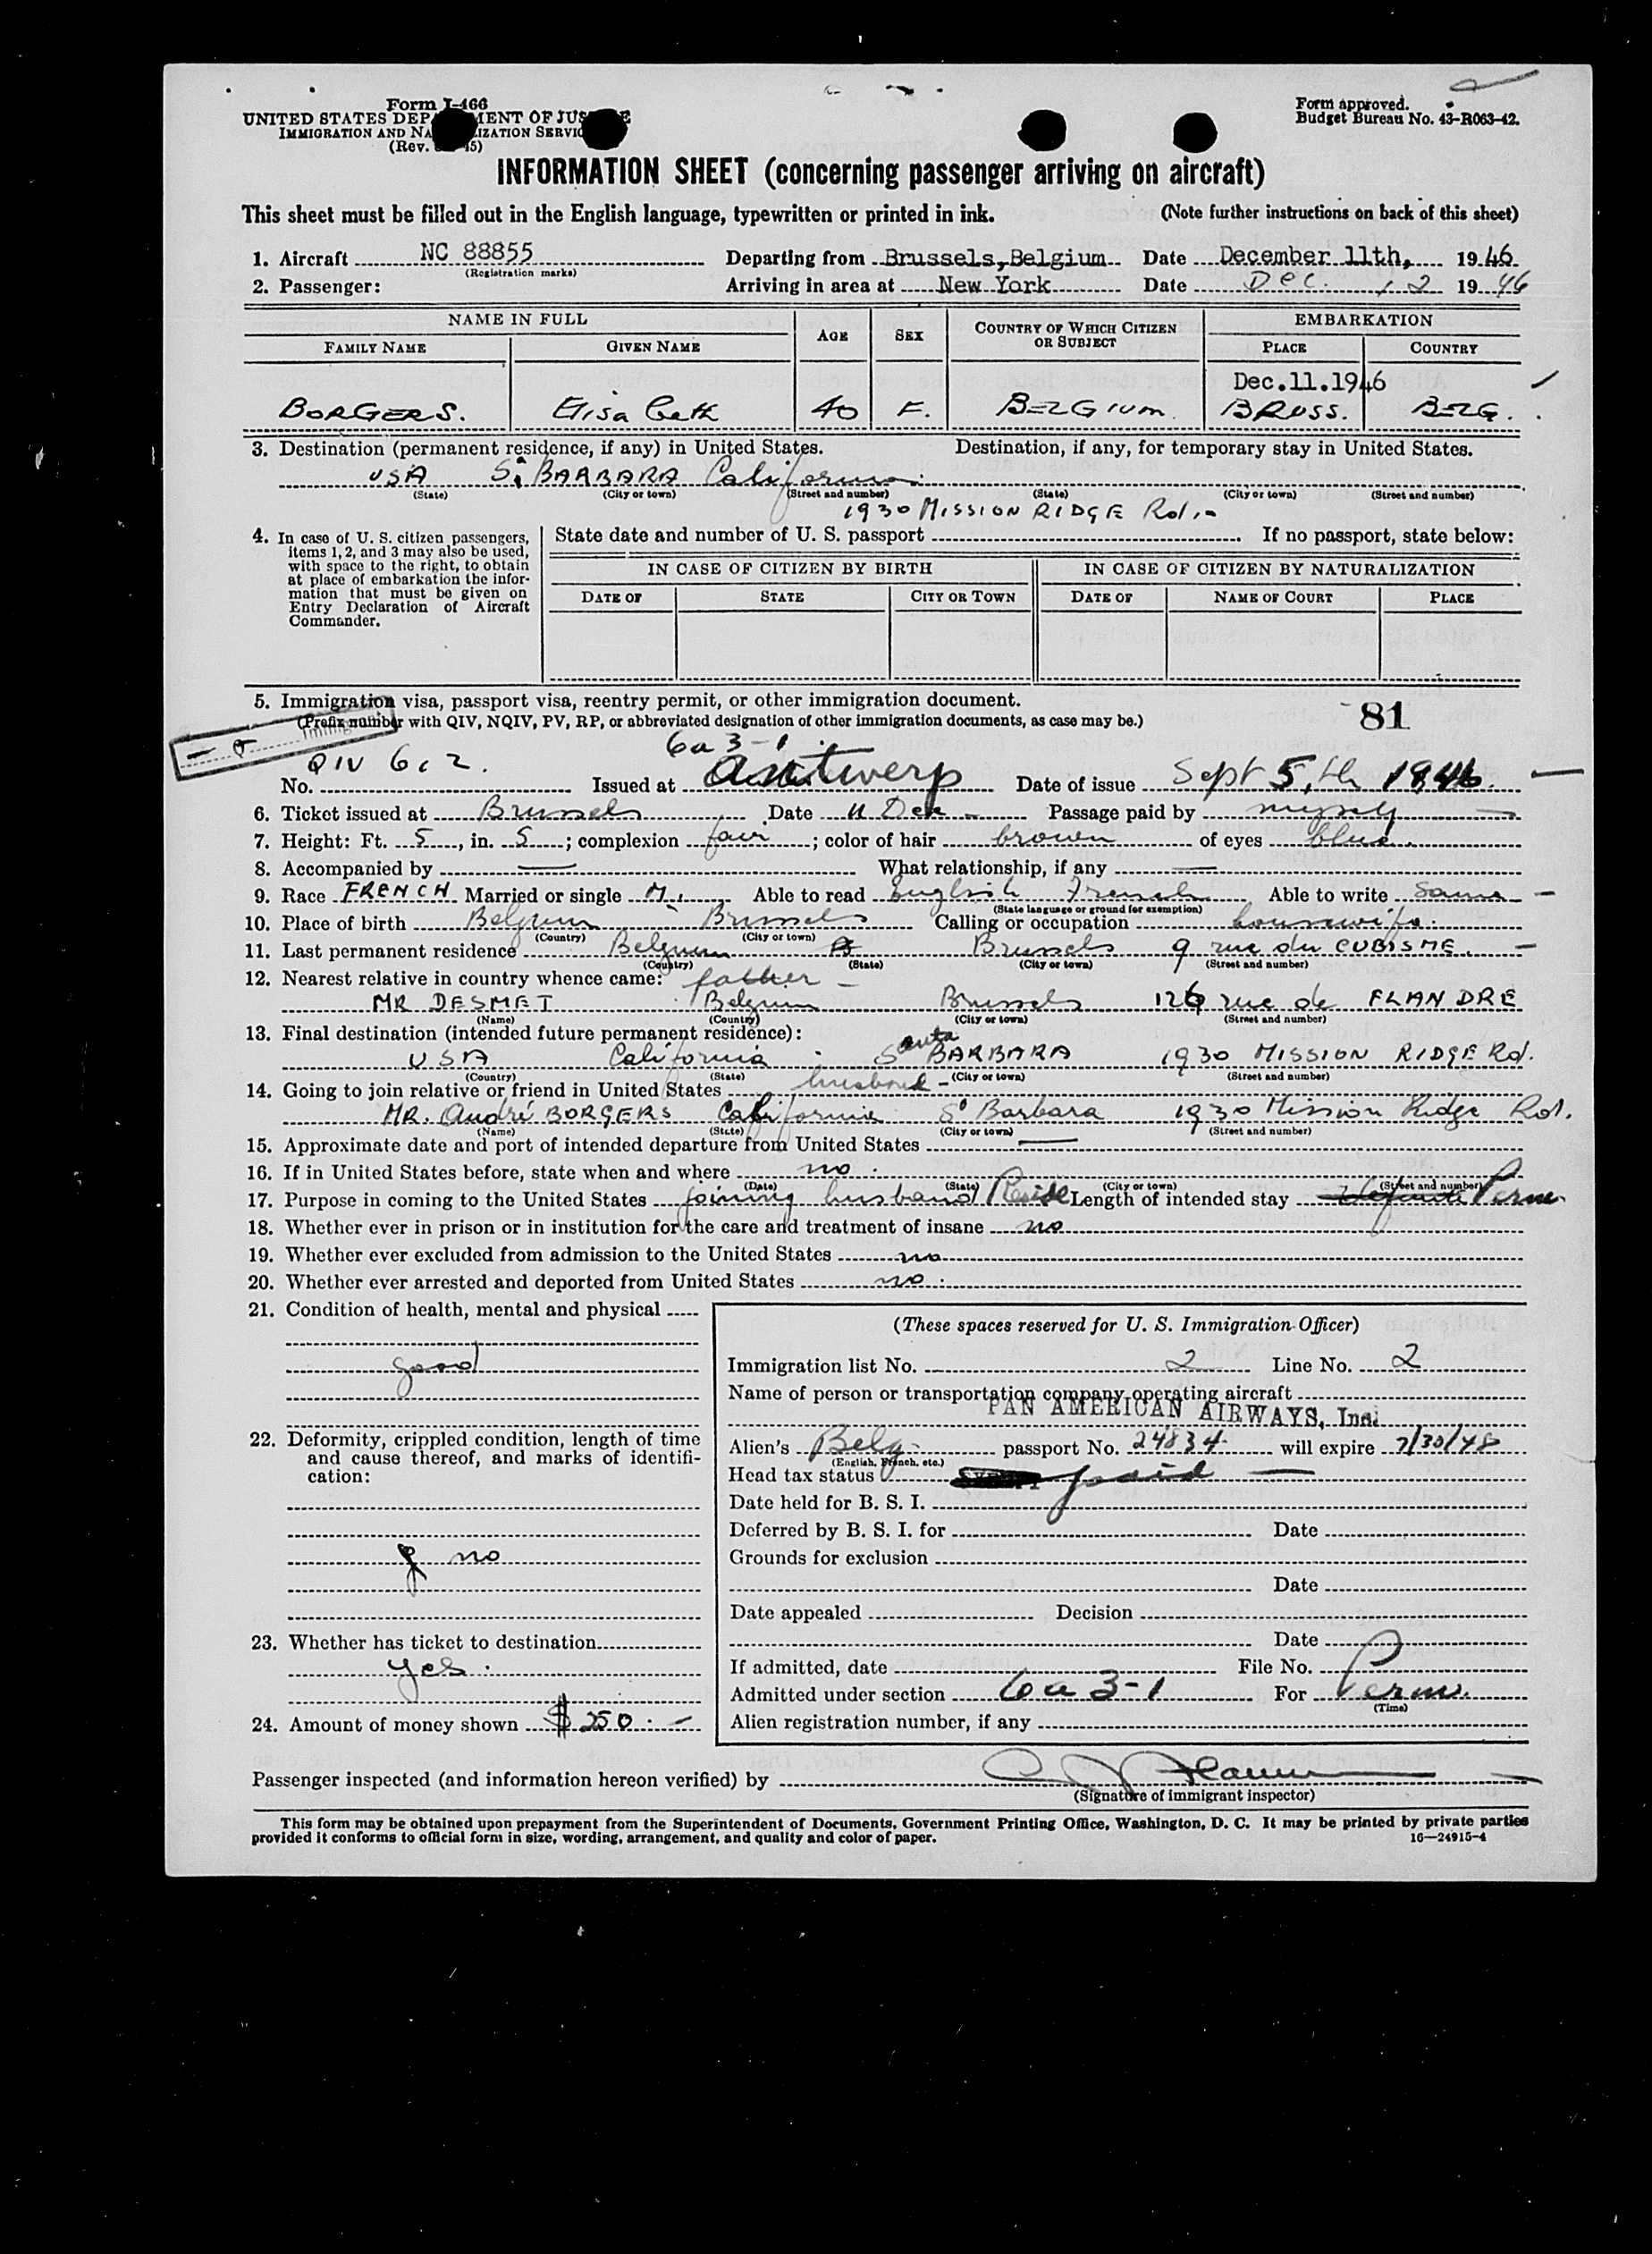 Form I-466
UNITED STATES DEPARTMENT OF JUSTICE
IMMIGRATION AND NATURALIZATION SERVICE
(Rev.
Form approved.
Budget Bureau No. 43-R063-42.
INFORMATION SHEET (concerning passenger arriving on aircraft)
This sheet must be filled out in the English language, typewritten or printed in ink. (Note further instructions on back of this sheet)
1. Aircraft NC 88855 Departing from Brussels, Belgium Date December 11th, 1946
(Registration marks)
2. Passenger: Arriving in area at New York Date Dec. 12 1946
NAME IN FULL AGE SEX COUNTRY OF WHICH CITIZEN OR SUBJECT EMBARKATION
FAMILY NAME GIVEN NAME PLACE COUNTRY
Dec.11.1946
BORGERS. Elisabeth 40 F. BELGIUM. BRUSS. BELG.
3. Destination (permanent residence, if any) in United States. Destination, if any, for temporary stay in United States.
USA Sa BARBARA California
(State) (City or town) (Street and number) (State) (City or town) (Street and number)
1930 MISSION RIDGE Rd.
4. In case of U. S. citizen passengers, items 1, 2, and 3 may also be used, with space to the right, to obtain at place of embarkation the information that must be given on Entry Declaration of Aircraft Commander.
State date and number of U. S. passport If no passport, state below:
IN CASE OF CITIZEN BY BIRTH IN CASE OF CITIZEN BY NATURALIZATION
DATE OF STATE CITY OR TOWN DATE OF NAME OF COURT PLACE
5. Immigration visa, passport visa, reentry permit, or other immigration document.
(Prefix number with QIV, NQIV, PV, RP, or abbreviated designation of other immigration documents, as case may be.) 81
6a 3-1
No. QIV 612. Issued at Antwerp Date of issue Sept 5th 1946
6. Ticket issued at Brussels Date 11 Dec Passage paid by myself
7. Height: Ft. 5, in. 5; complexion fair; color of hair brown of eyes blue.
8. Accompanied by — What relationship, if any —
9. Race FRENCH Married or single M. Able to read English French Able to write same
(State language or ground for exemption)
10. Place of birth Belgium Brussels Calling or occupation housewife.
(Country) (City or town)
11. Last permanent residence Belgium Brussels 9 rue du CUBISME.
(Country) (State) (City or town) (Street and number)
12. Nearest relative in country whence came: father
MR DESMET Belgium Brussels 126 rue de FLANDRE
(Name) (Country) (City or town) (Street and number)
13. Final destination (intended future permanent residence):
USA California Santa BARBARA 1930 MISSION RIDGE Rd.
(Country) (State) (City or town) (Street and number)
14. Going to join relative or friend in United States husband
MR. André BORGERS California Sa Barbara 1930 Mission Ridge Rd.
(Name) (State) (City or town) (Street and number)
15. Approximate date and port of intended departure from United States —
16. If in United States before, state when and where no.
(Date) (State) (City or town) (Street and number)
17. Purpose in coming to the United States joining husband Reside Length of intended stay Perm.
18. Whether ever in prison or in institution for the care and treatment of insane no
19. Whether ever excluded from admission to the United States no
20. Whether ever arrested and deported from United States no.
21. Condition of health, mental and physical
good
22. Deformity, crippled condition, length of time and cause thereof, and marks of identification:
no
23. Whether has ticket to destination
yes.
24. Amount of money shown $250.
(These spaces reserved for U. S. Immigration Officer)
Immigration list No. 2 Line No. 2
Name of person or transportation company operating aircraft
PAN AMERICAN AIRWAYS, Inc.
Alien's Belg. passport No. 24834 will expire 7/30/48
(English, French, etc.)
Head tax status paid
Date held for B. S. I.
Deferred by B. S. I. for Date
Grounds for exclusion
Date
Date appealed Decision
Date
If admitted, date File No.
Admitted under section 6a 3-1 For Perm.
(Time)
Alien registration number, if any
Passenger inspected (and information hereon verified) by
(Signature of immigrant inspector)
This form may be obtained upon prepayment from the Superintendent of Documents, Government Printing Office, Washington, D. C. It may be printed by private parties
provided it conforms to official form in size, wording, arrangement, and quality and color of paper. 16—24915-4